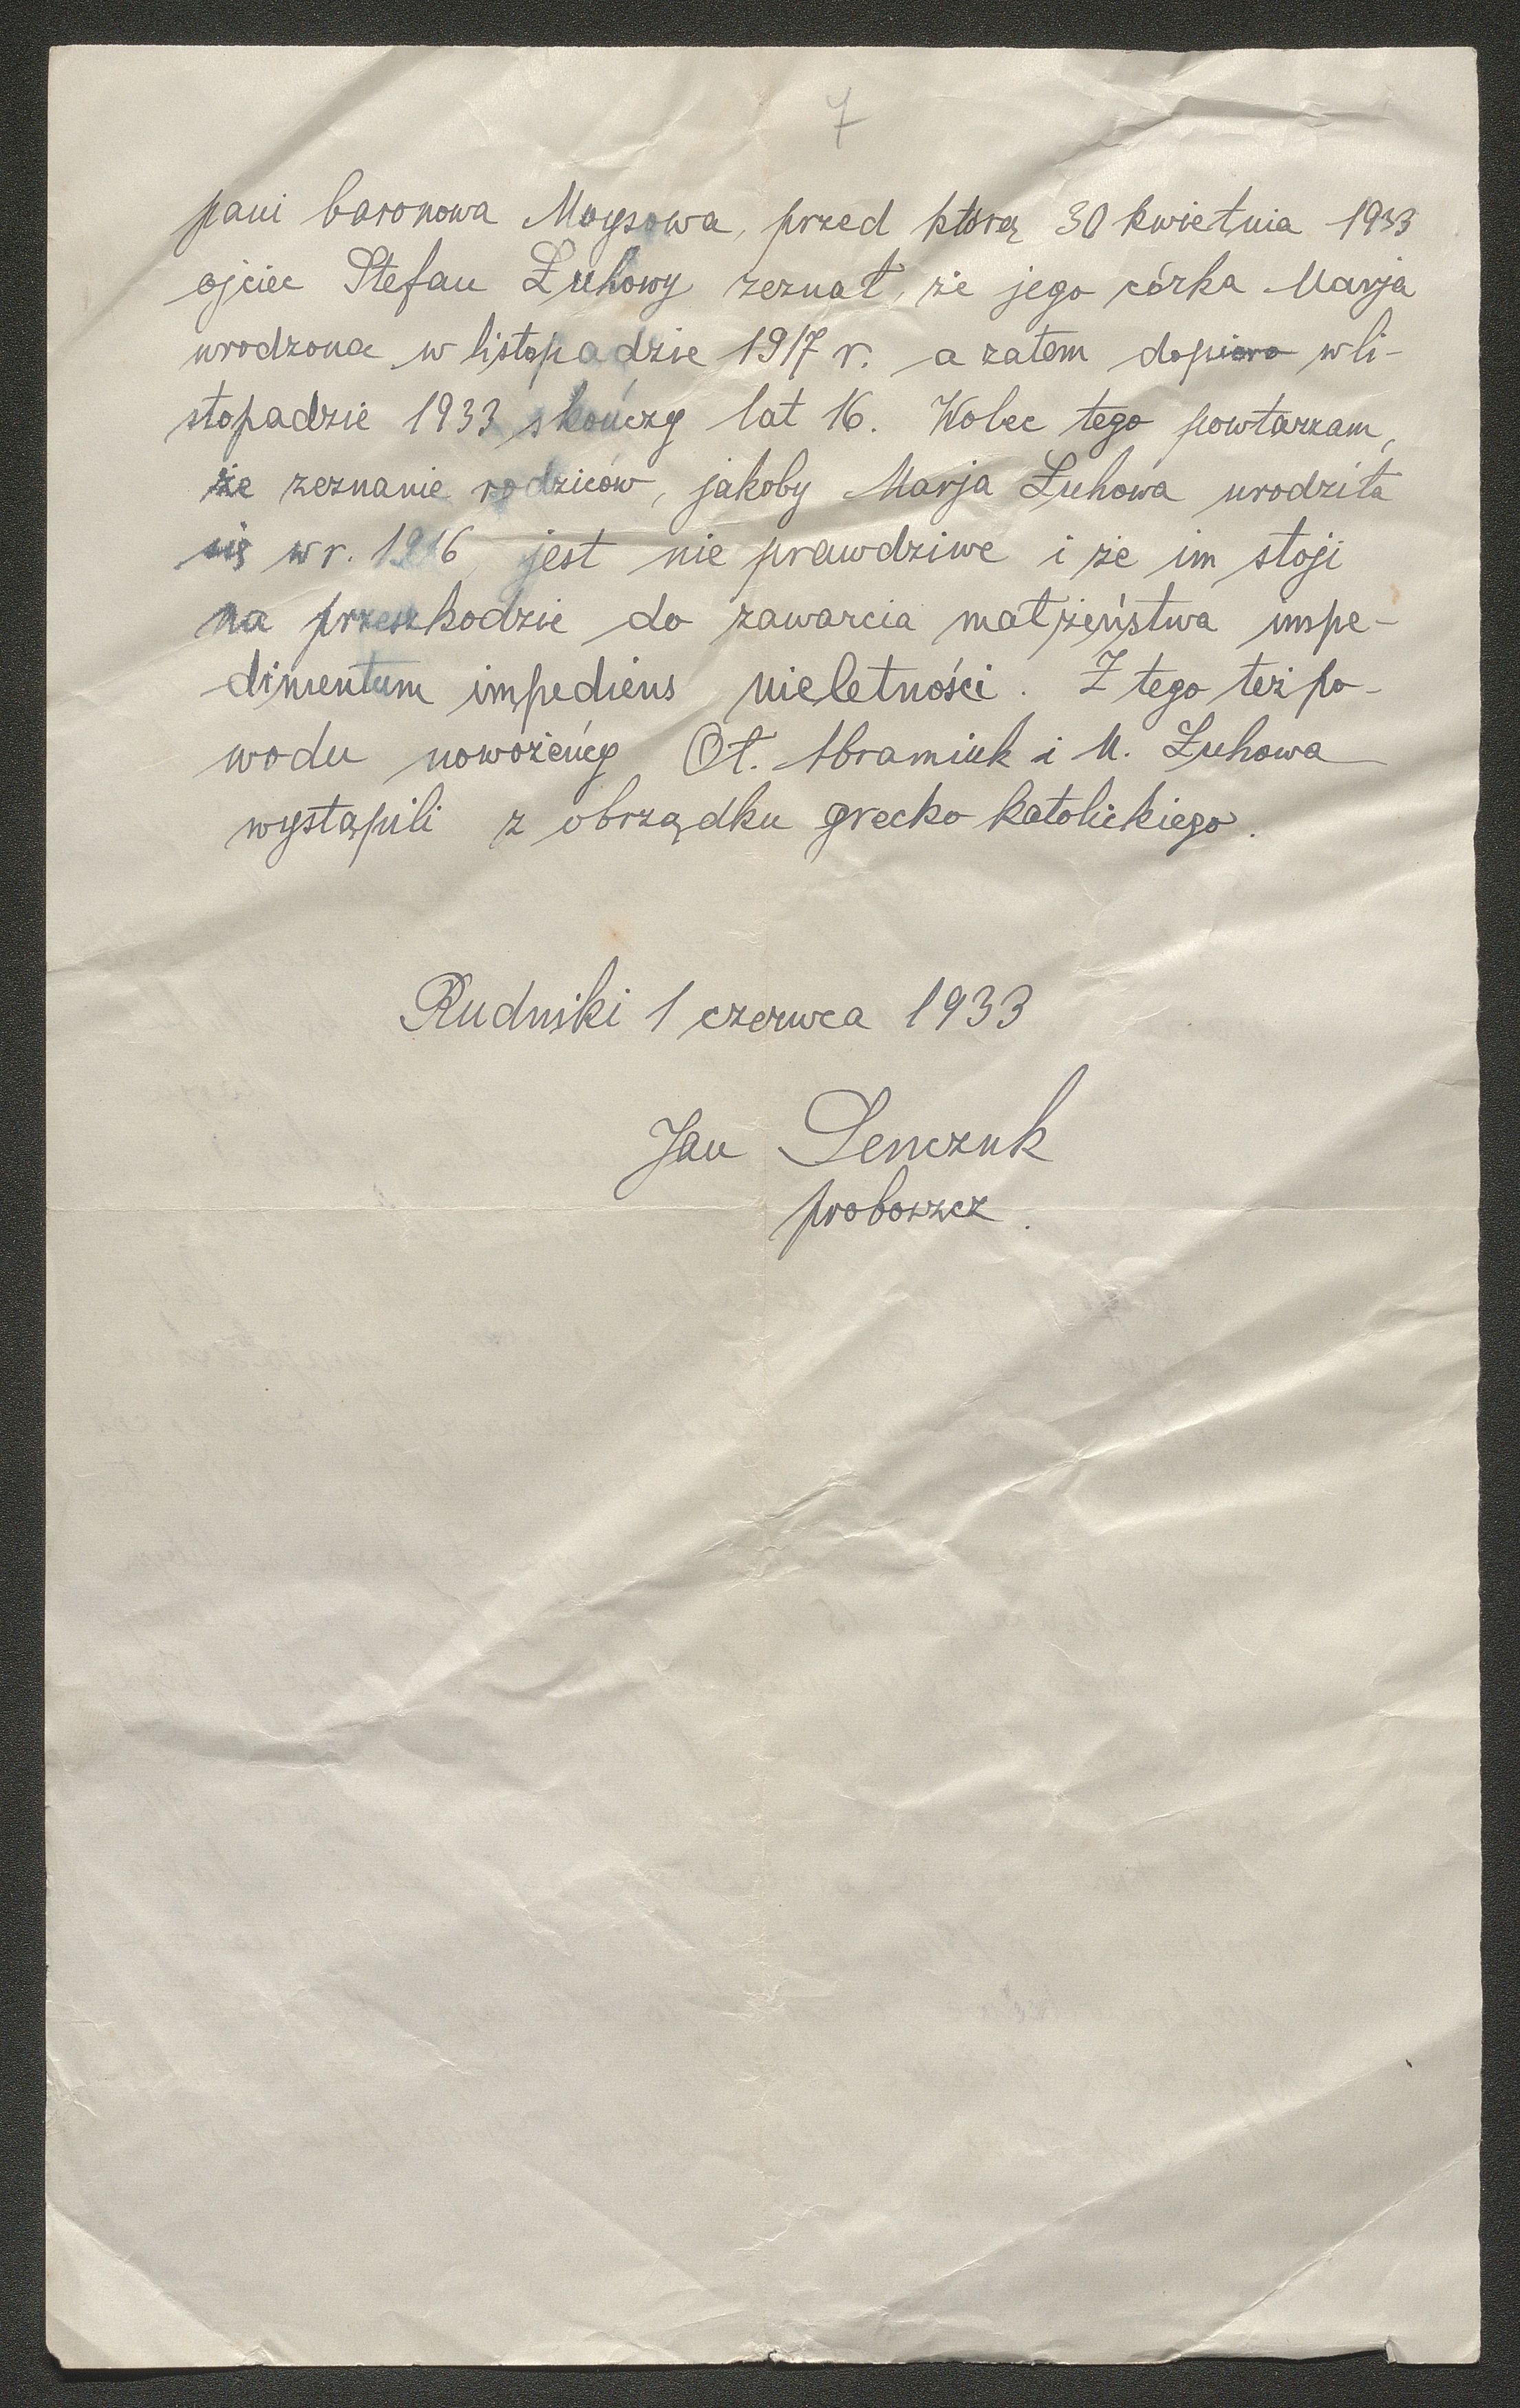 7
pani baronowa Moysowa, przed którą 30 kwietnia 1933
ojciec Stefan Łuhowy zeznał, że jego córka Marja
urodzona w listopadzie 1917 r. a zatem dopiero w li-
stopadzie 1933 skończy lat 16. Wobec tego powtarzam,
że zeznanie rodziców, jakoby Marja Łuhowa urodziła
się w r. 1916, jest nie prawdziwe i że im stoji
na przeszkodzie do zawarcia małżeństwa impe-
dimentum impediens nieletności. Z tego też po-
wodu nowożeńcy Ot. Abramiuk i M. Łuhowa
wystąpili z obrządku grecko katolickiego.
Rudniki 1 czerwca 1933
Jan Senczuk
proboszcz.